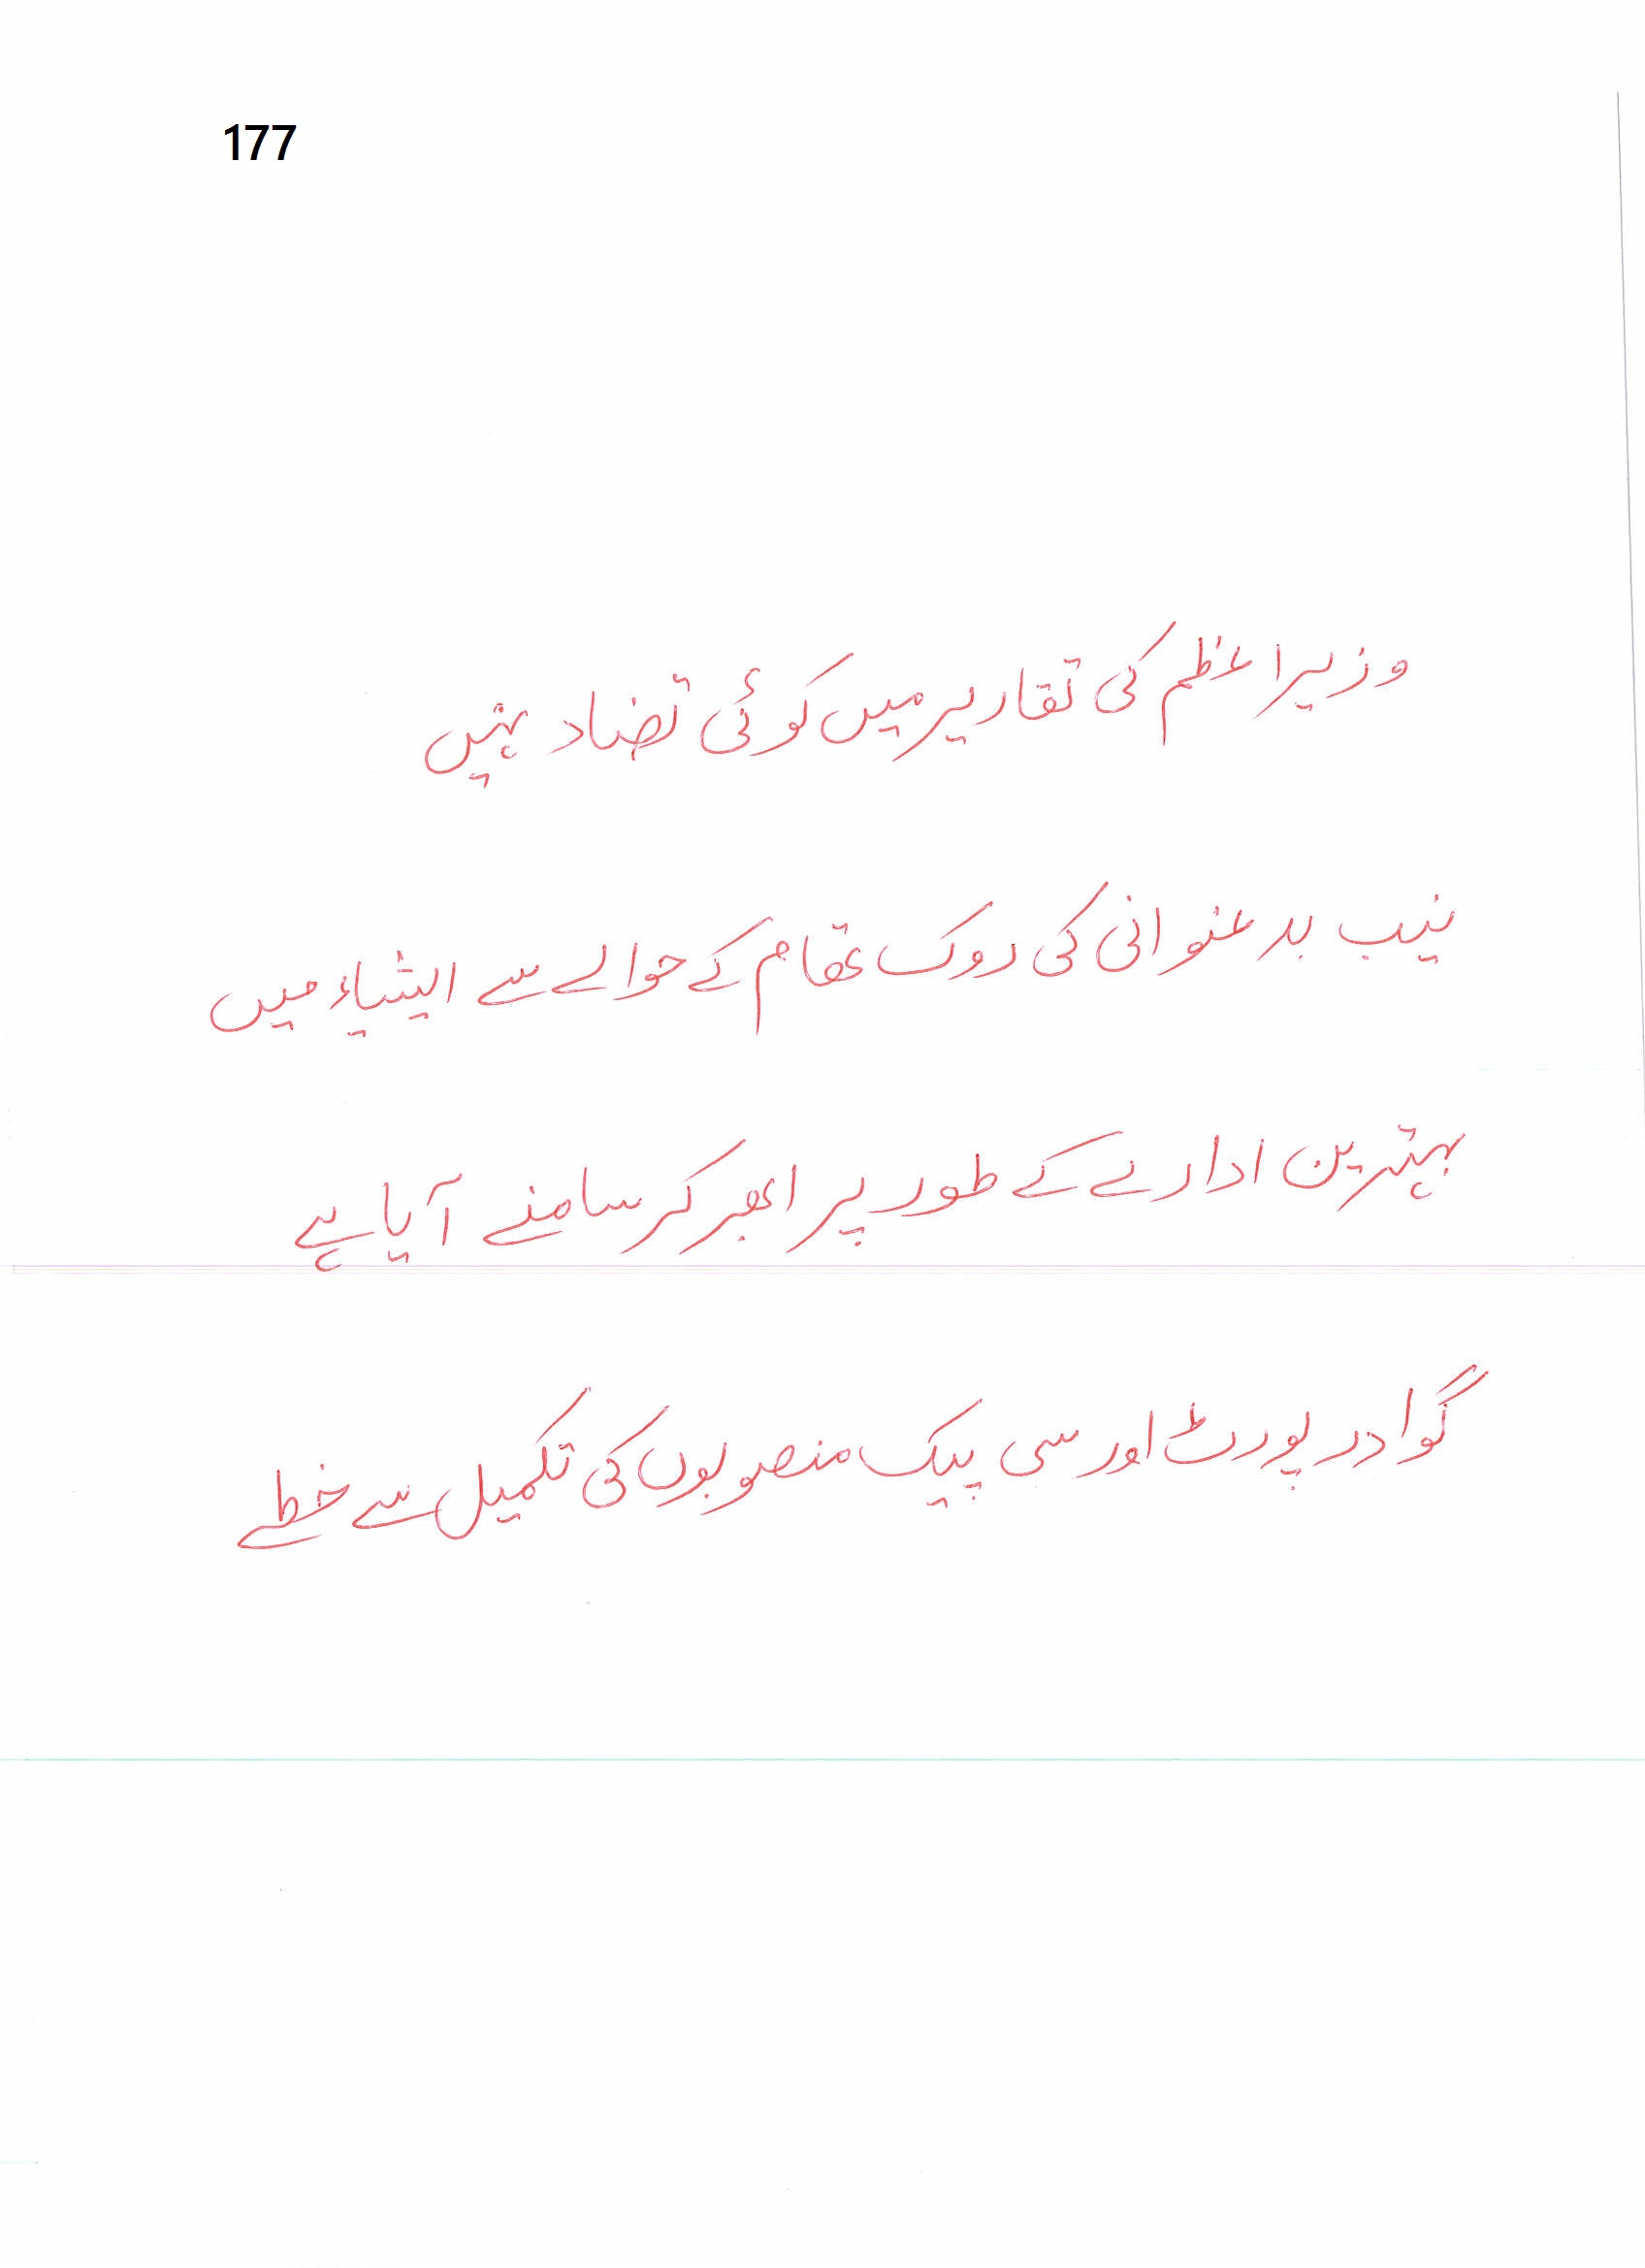 177
وزیراعظم کی تقاریر میں کوئی تضاد نہیں
نیب بدعنوانی کی روک تھام کے حوالے سے ایشیاء میں
بہترین ادارے کے طور پر ابھر کر سامنے آیا ہے
گوادر پورٹ اور سی پیک منصوبوں کی تکمیل سے خطے